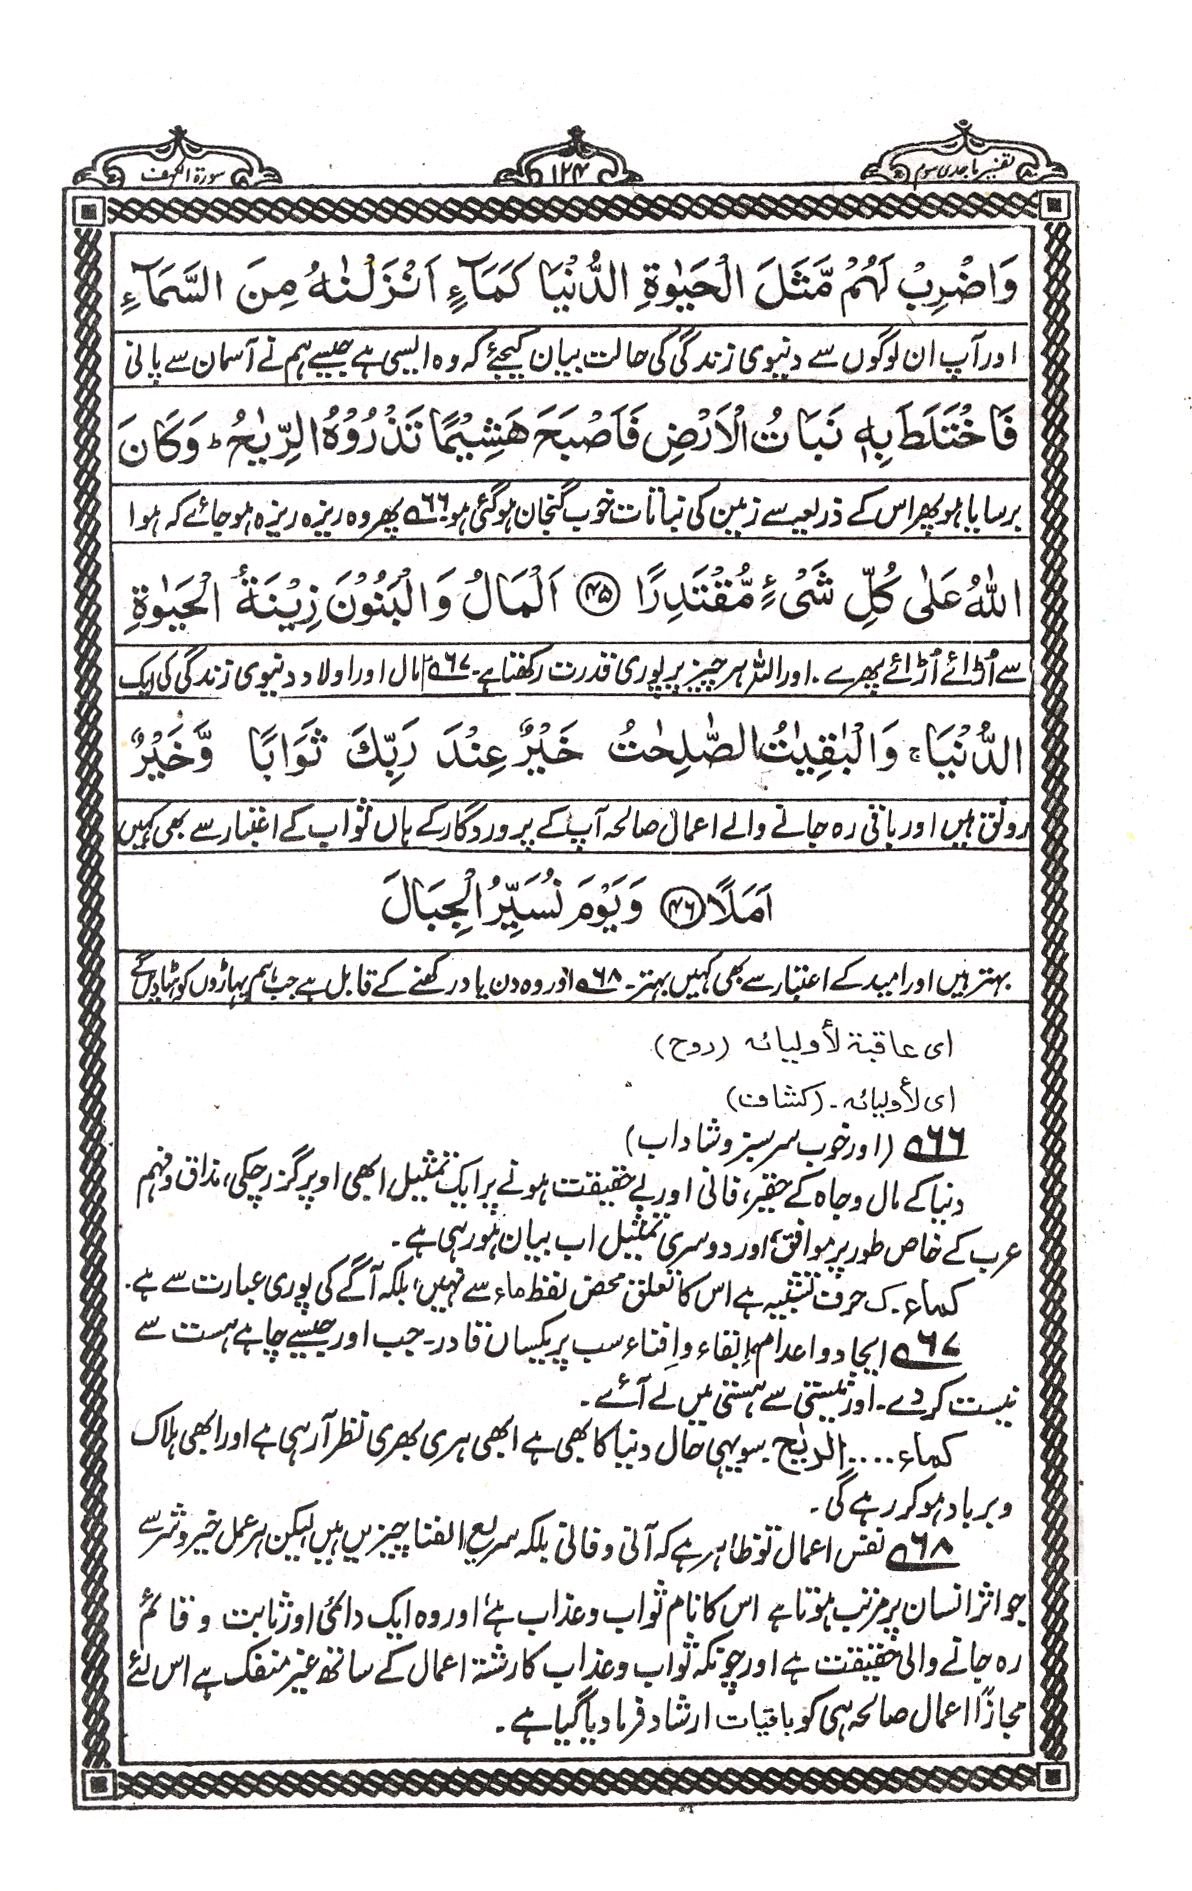 تفسیر ماجدی سوم
۱۲۴
سورۃ الکہف
وَاضْرِبْ لَهُمْ مَّثَلَ الْحَيٰوةِ الدُّنْيَا كَمَآءٍ اَنْزَلْنٰهُ مِنَ السَّمَآءِ
اور آپ ان لوگوں سے دنیوی زندگی کی حالت بیان کیجئے کہ وہ ایسی ہے جیسے ہم نے آسمان سے پانی
فَاخْتَلَطَ بِهٖ نَبَاتُ الْاَرْضِ فَاَصْبَحَ هَشِيْمًا تَذْرُوْهُ الرِّيٰحُ ؕ وَكَانَ
برسایا ہو پھر اس کے ذریعہ سے زمین کی نباتات خوب گنجان ہوگئی ہو۔ ۶۶ پھر وہ ریزہ ریزہ ہو جائے کہ ہوا
اللّٰهُ عَلٰى كُلِّ شَیْءٍ مُّقْتَدِرًا ﴿۴۵﴾ اَلْمَالُ وَالْبَنُوْنَ زِيْنَةُ الْحَيٰوةِ
سے اُڑائے اُڑائے پھرے۔ اور اللہ ہر چیز پر پوری قدرت رکھتا ہے۔ ۶۷ مال اور اولاد دنیوی زندگی کی ایک
الدُّنْيَا ۚ وَالْبٰقِيٰتُ الصّٰلِحٰتُ خَيْرٌ عِنْدَ رَبِّكَ ثَوَابًا وَّخَيْرٌ
رونق ہیں اور باقی رہ جانے والے اعمال صالحہ آپ کے پروردگار کے ہاں ثواب کے اعتبار سے بھی کہیں
اَمَلًا ﴿۴۶﴾ وَيَوْمَ نُسَيِّرُ الْجِبَالَ
بہتر ہیں اور امید کے اعتبار سے بھی کہیں بہتر۔ ۶۸ اور وہ دن یاد رکھنے کے قابل ہے جب ہم پہاڑوں کو ہٹا دیں گے
ای عاقبة لأولیائه (روح)
ای لأولیائه۔ (کشاف)
۶۶ (اور خوب سرسبز و شاداب)
دنیا کے مال و جاہ کے حقیر، فانی اور بے حقیقت ہونے پر ایک تمثیل ابھی اوپر گزر چکی، مذاق و فہم
عرب کے خاص طور پر موافق، اور دوسری تمثیل اب بیان ہو رہی ہے۔
کماء۔ ک حرف تشبیہ ہے اس کا تعلق محض لفظ ماء سے نہیں، بلکہ آگے کی پوری عبارت سے ہے۔
۶۷ ایجاد و اعدام، اِبقاء و اِفناء سب پر یکساں قادر۔ جب اور جیسے چاہے ہست سے
نیست کر دے۔ اور نیستی سے ہستی میں لے آئے۔
کماء .... الریٰح۔ سو یہی حال دنیا کا بھی ہے ابھی ہری بھری نظر آ رہی ہے اور ابھی ہلاک
و برباد ہو کر رہے گی۔
۶۸ نفس اعمال تو ظاہر ہے کہ آنی و فانی بلکہ سریع الفنا چیزیں ہیں لیکن ہر عمل خیر و شر سے
جو اثر انسان پر مرتب ہوتا ہے اس کا نام ثواب و عذاب ہے، اور وہ ایک دائمی اور ثابت و قائم
رہ جانے والی حقیقت ہے اور چونکہ ثواب و عذاب کا رشتہ اعمال کے ساتھ غیر منفک ہے اس لئے
مجازاً اعمال صالحہ ہی کو باقیات ارشاد فرما دیا گیا ہے۔